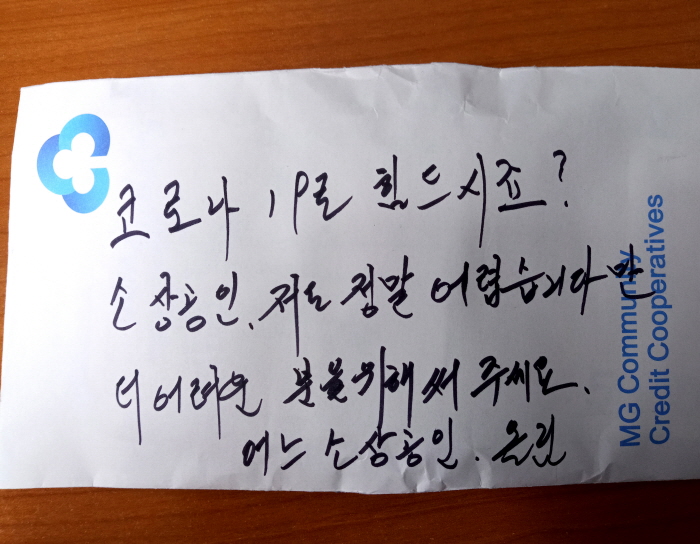 코로나 19로 힘드시죠?
소상공인. 저도 정말 어렵습니다만
더 어려운 분을 위해 써 주세요.
어느 소상공인. 올림
MG Community
Credit Cooperatives